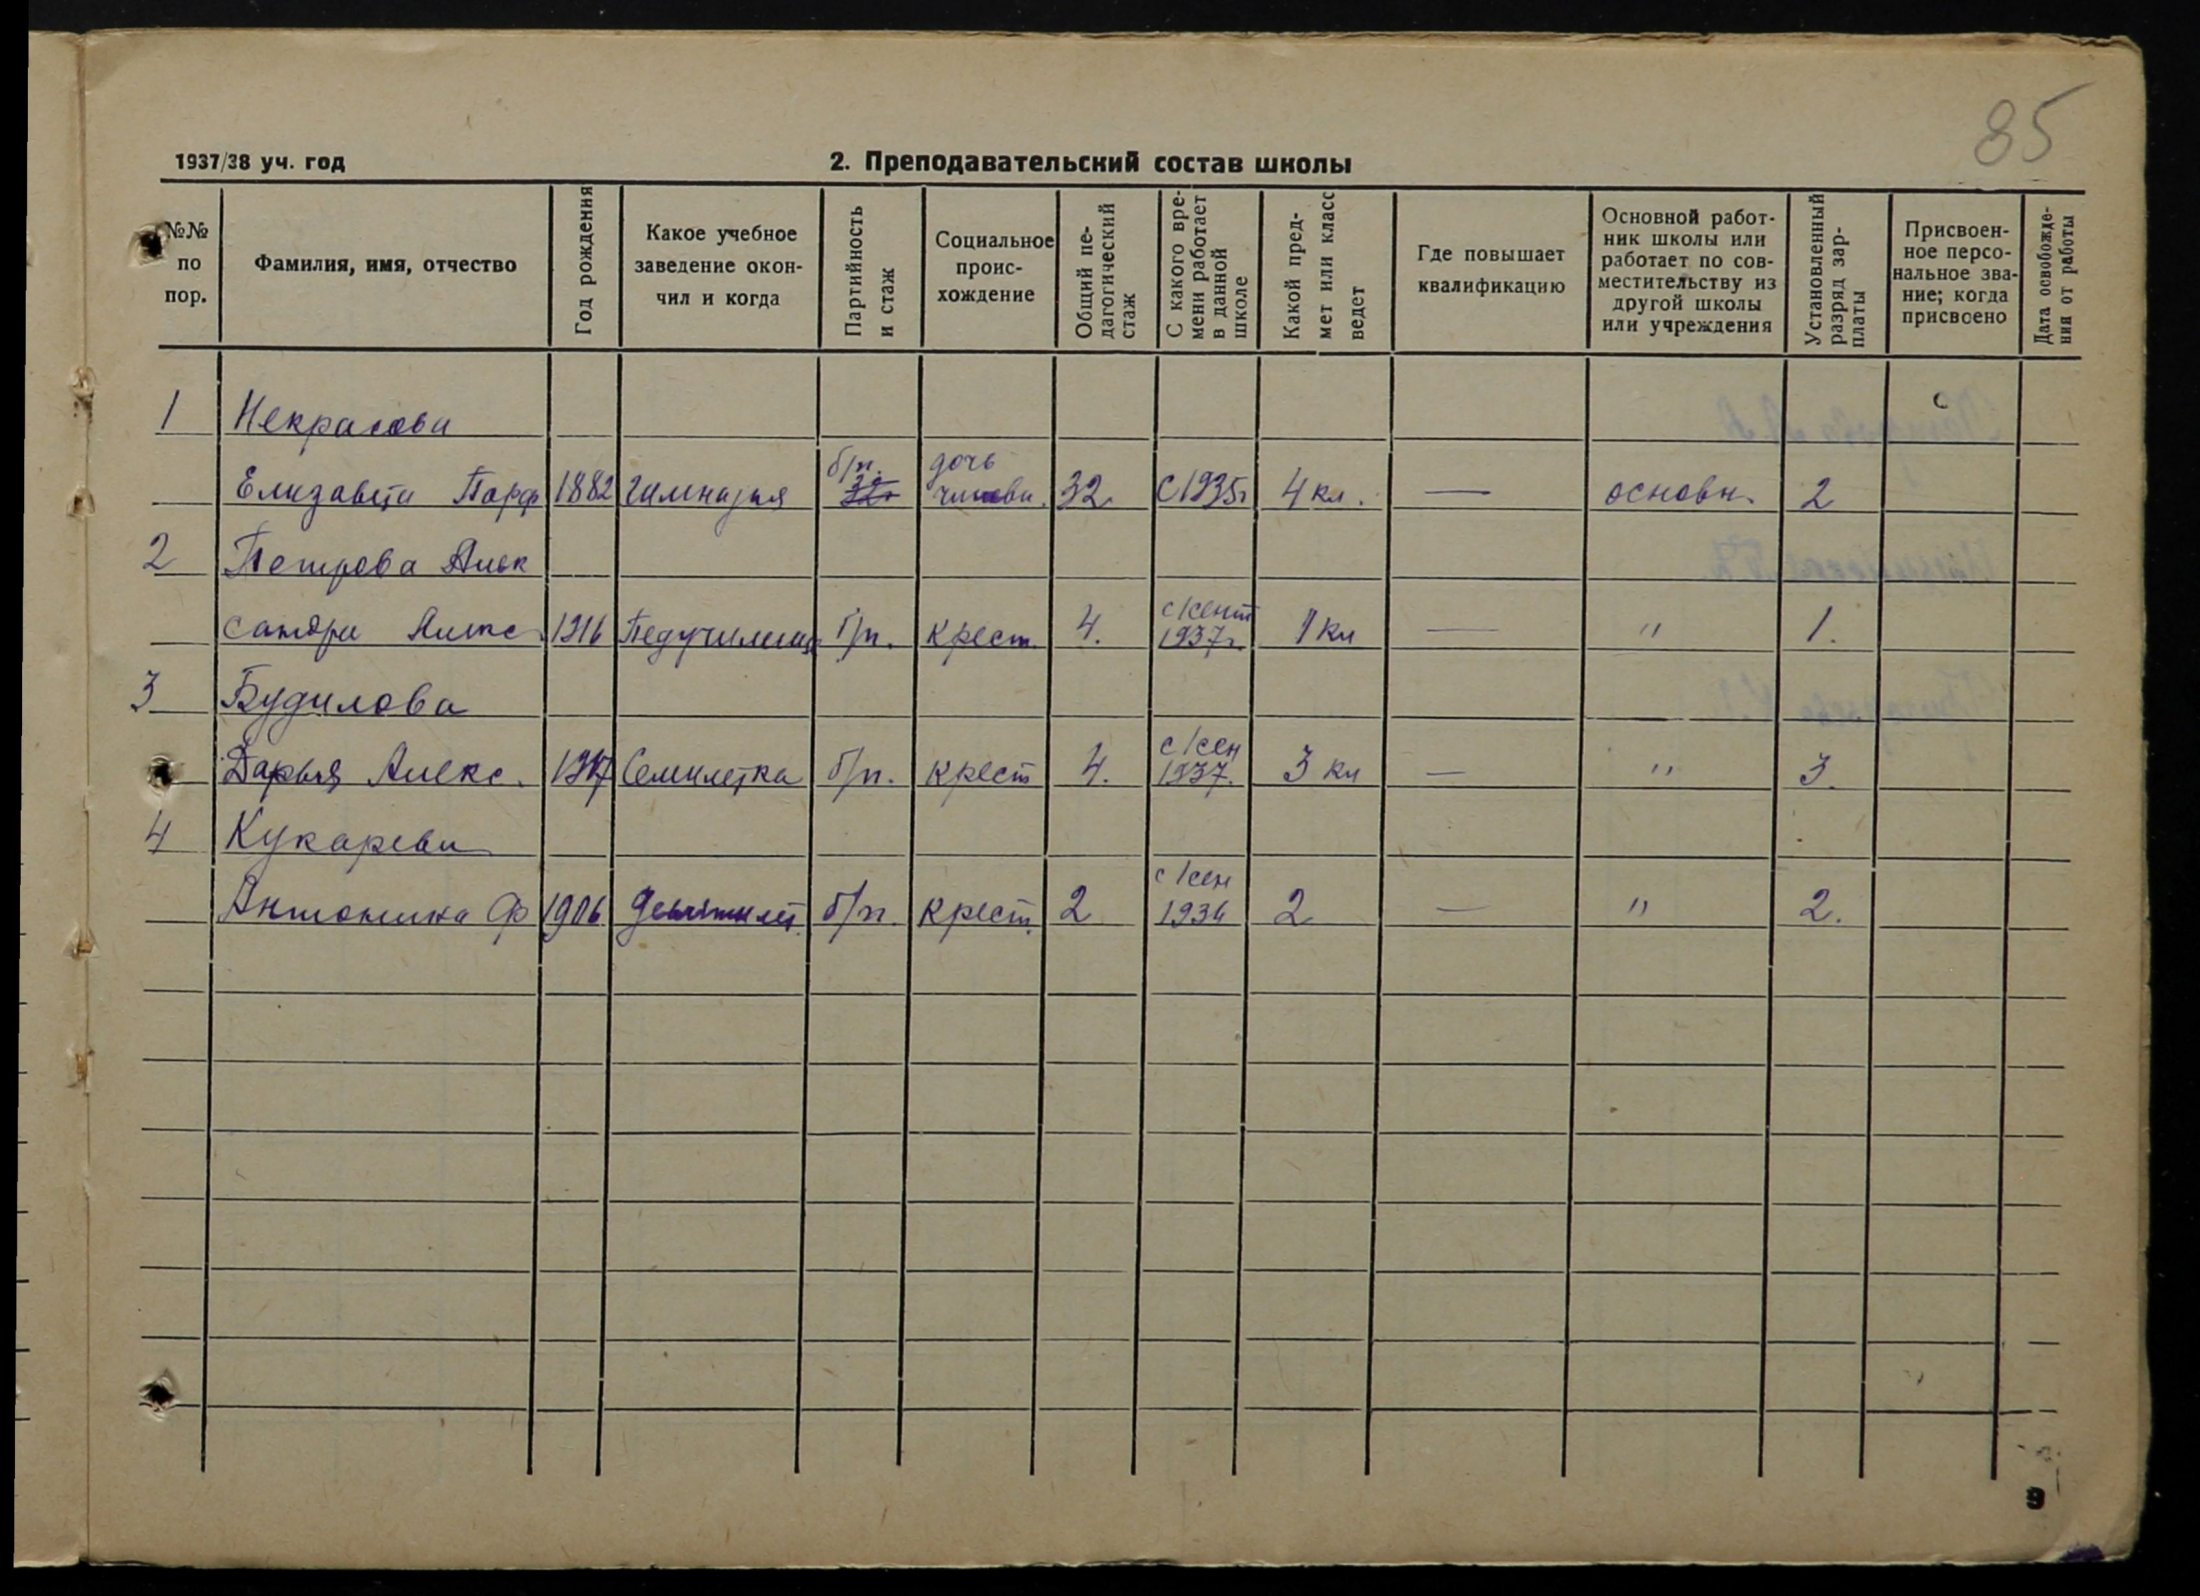 85
1937/38 уч. год 2. Преподавательский состав школы
№№ по пор. Фамилия, имя, отчество Год рождения Какое учебное заведение окончил и когда Партийность и стаж Социальное происхождение Общий педагогический стаж С какого времени работает в данной школе Какой предмет или класс ведет Где повышает квалификацию Основной работник школы или работает по совместительству из другой школы или учреждения Установленный разряд зарплаты Присвоенное персональное звание; когда присвоено Дата освобождения от работы
1 Некрасова
б/п. дочь
Елизавета Парф 1882 гимназия чиновн. 32 с 1935г 4 кл. — основн. 2
2 Петрова Алек
с 1 сент
сандра Алекс 1916 Педучилище б/п. крест. 4. 1937г. 1 кл — " 1.
3 Будилова
с 1 сен
Дарья Алекс. Семилетка б/п. крест 4. 1937. 3 кл — " 3.
4 Кукарева
с 1 сен
Антонина Ф 1906 девятилет. б/п. крест. 2 1936 2 — " 2.
9